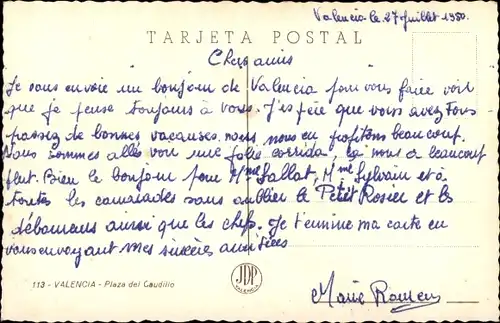 Valencia le 27 Juillet 1950.
TARJETA POSTAL
Chers amis
Je vous envoie un bonjour de Valencia pour vous faire voir
que je pense toujours à vous. J'espère que vous avez tous
passez de bonnes vacances, nous nous en profitons beaucoup.
Nous sommes allés voir une jolie corrida, ça nous a beaucoup
plut. Bien le bonjour pour Mme Lallat, Mme Sylvain et à
toutes les camarades sans oublier le Petit Rosier et les
débourreurs ainsi que les chefs. Je termine ma carte en
vous envoyant mes sincères amitiées
113 - VALENCIA - Plaza del Caudillo
JDP
VALENCIA
Marie